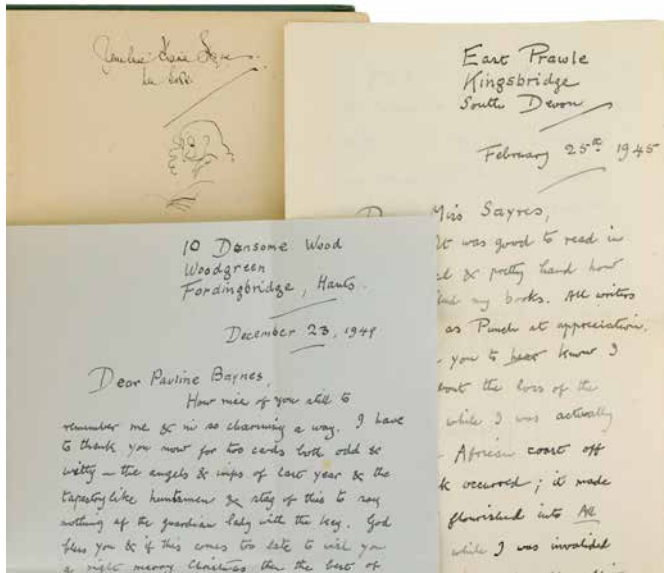 East Prawle
Kingsbridge
South Devon
February 25th 1945
Miss Sayres,
It was good to read in
& pretty hand how
my books. All writers
as Punch at appreciation.
you to hear know I
the loss of the
while I was actually
African coast off
k occurred; it made
flourished into All
while I was invalided
10 Densome Wood
Woodgreen
Fordingbridge, Hants.
December 23, 1949
Dear Pauline Baynes,
How nice of you still to
remember me & in so charming a way. I have
to thank you now for two cards both odd &
witty – the angels & imps of last year & the
tapestrylike huntsmen & stag of this to say
nothing of the guardian lady with the key. God
bless you & if this comes too late to wish you
a right merry Christmas then the best of